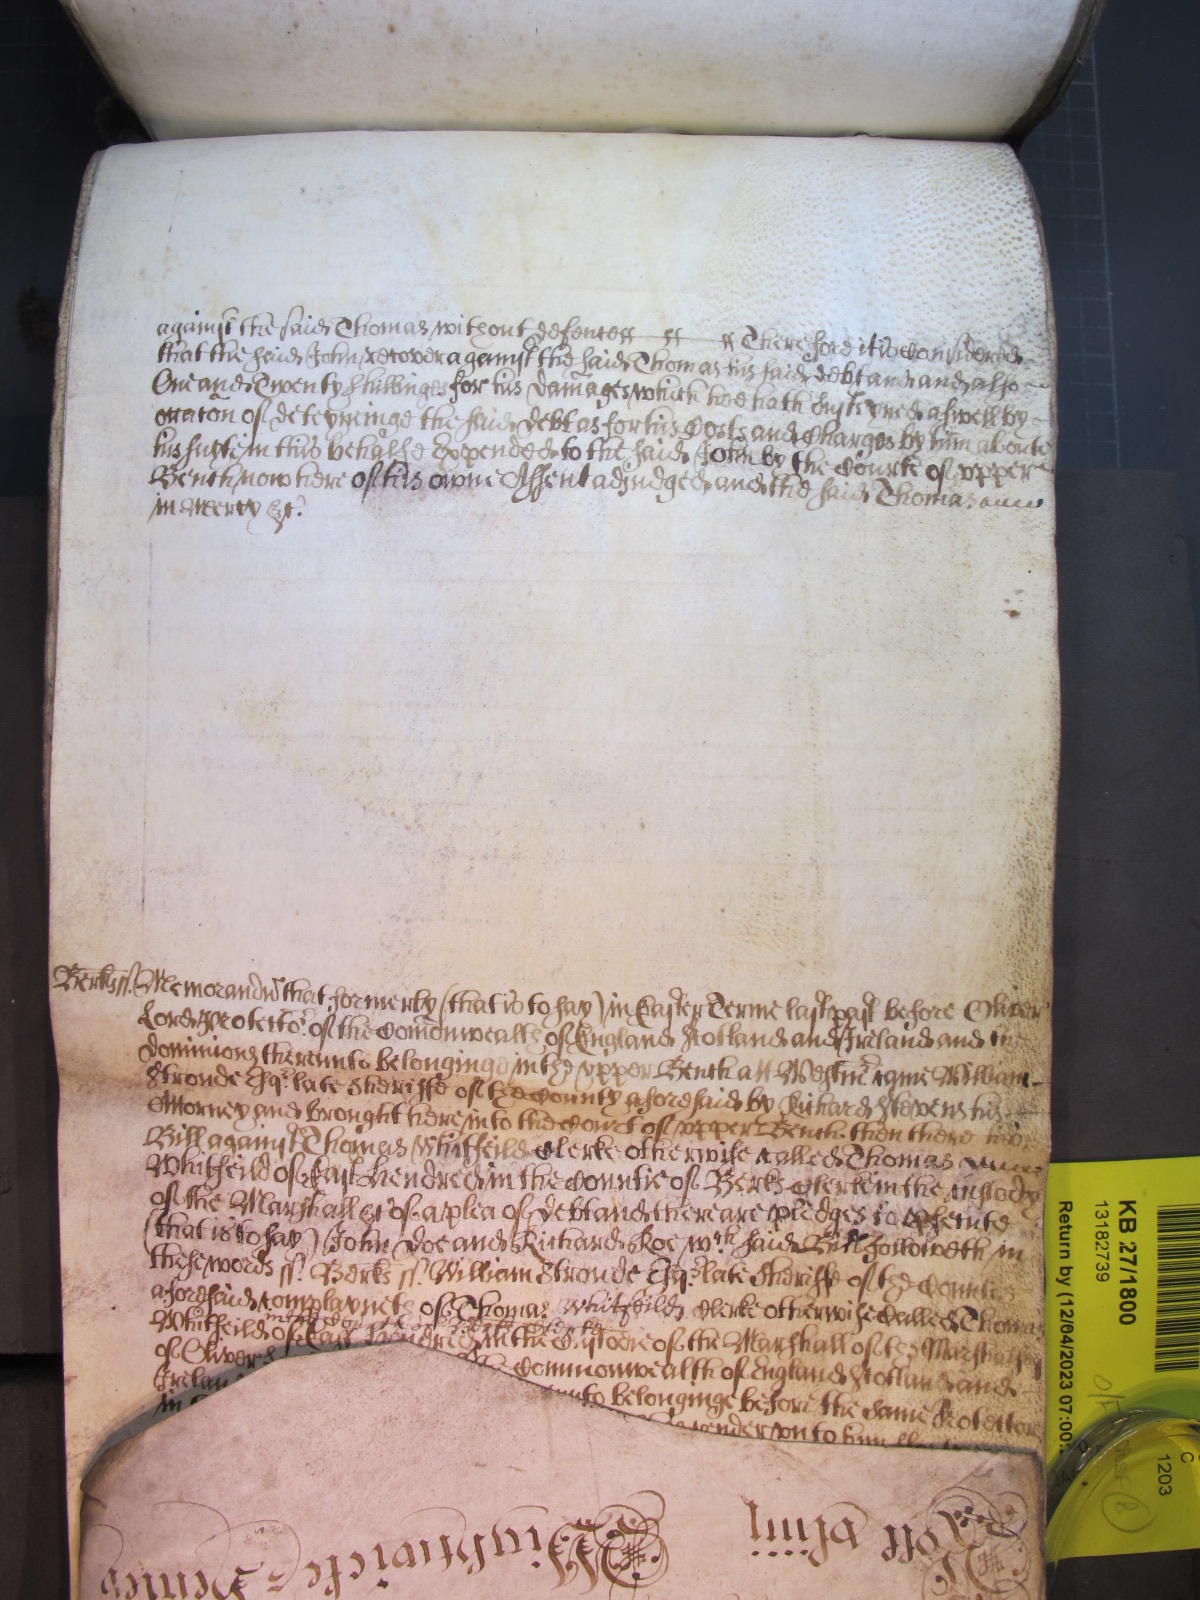 against the said Thomas without defence ss ss ss Therefore it is considered
that the said John recover against the said Thomas his said debt and also
One and Twenty shillinges for his damages which hee hath susteyned aswell by
occacon of deteyneinge the said debt as for his Costs and Charges by him aboute
his suite in this behalfe expended to the said John by the Courte of vpper
Bench now here of his owne Assent adjudged and the said Thomas
in Mercy &c.
Berks ss. Memorandu that formerly (that is to say) in Easter Terme last past before Oliver
Lord Protector of the Comonwealth of England Scotland and Ireland and the
dominions thereunto belonginge in the vpper Bench att Westmr came William
Stroude Esqr late Sheriffe of the County aforesaid by Richard Stevens his
Attorney and brought here into the Court of vpper Bench then there his
Bill against Thomas Whitfeild Clerke otherwise called Thomas
Whitfeild of East Hendred in the Countie of Berks Clerke in the custody
of the Marshall &c of a plea of debt and there are pledges to
(that is to say) John Doe and Richard Roe wch said Bill followeth in
these words ss. Berks ss. William Stroude Esqr late Sheriffe of the Countie
aforesaid complayneth of Thomas Whitfeild Clerke otherwise called Thomas
Whitfeild of East Hendred in the Custodie of the Marshall of the Marshalsey
of Oliver Commonwealth of England Scotland and
Irelan belonginge before the same Protector
in render vnto him
Roll
KB 27/1800
13182739
Return by (12/04/2023 07:00:
1203